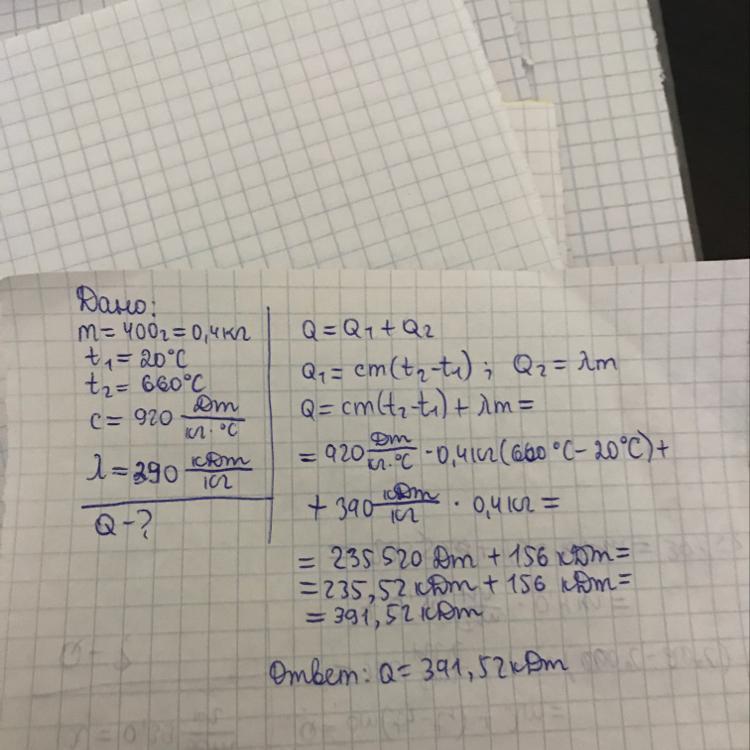 Дано:
m = 400г = 0,4кг
t₁ = 20°C
t₂ = 660°C
c = 920 Дж/кг·°C
λ = 390 кДж/кг
Q - ?
Q = Q₁ + Q₂
Q₁ = cm(t₂-t₁); Q₂ = λm
Q = cm(t₂-t₁) + λm =
= 920 Дж/кг·°C · 0,4кг(660°C - 20°C) +
+ 390 кДж/кг · 0,4кг =
= 235 520 Дж + 156 кДж =
= 235,52 кДж + 156 кДж =
= 391,52 кДж
Ответ: Q = 391,52 кДж